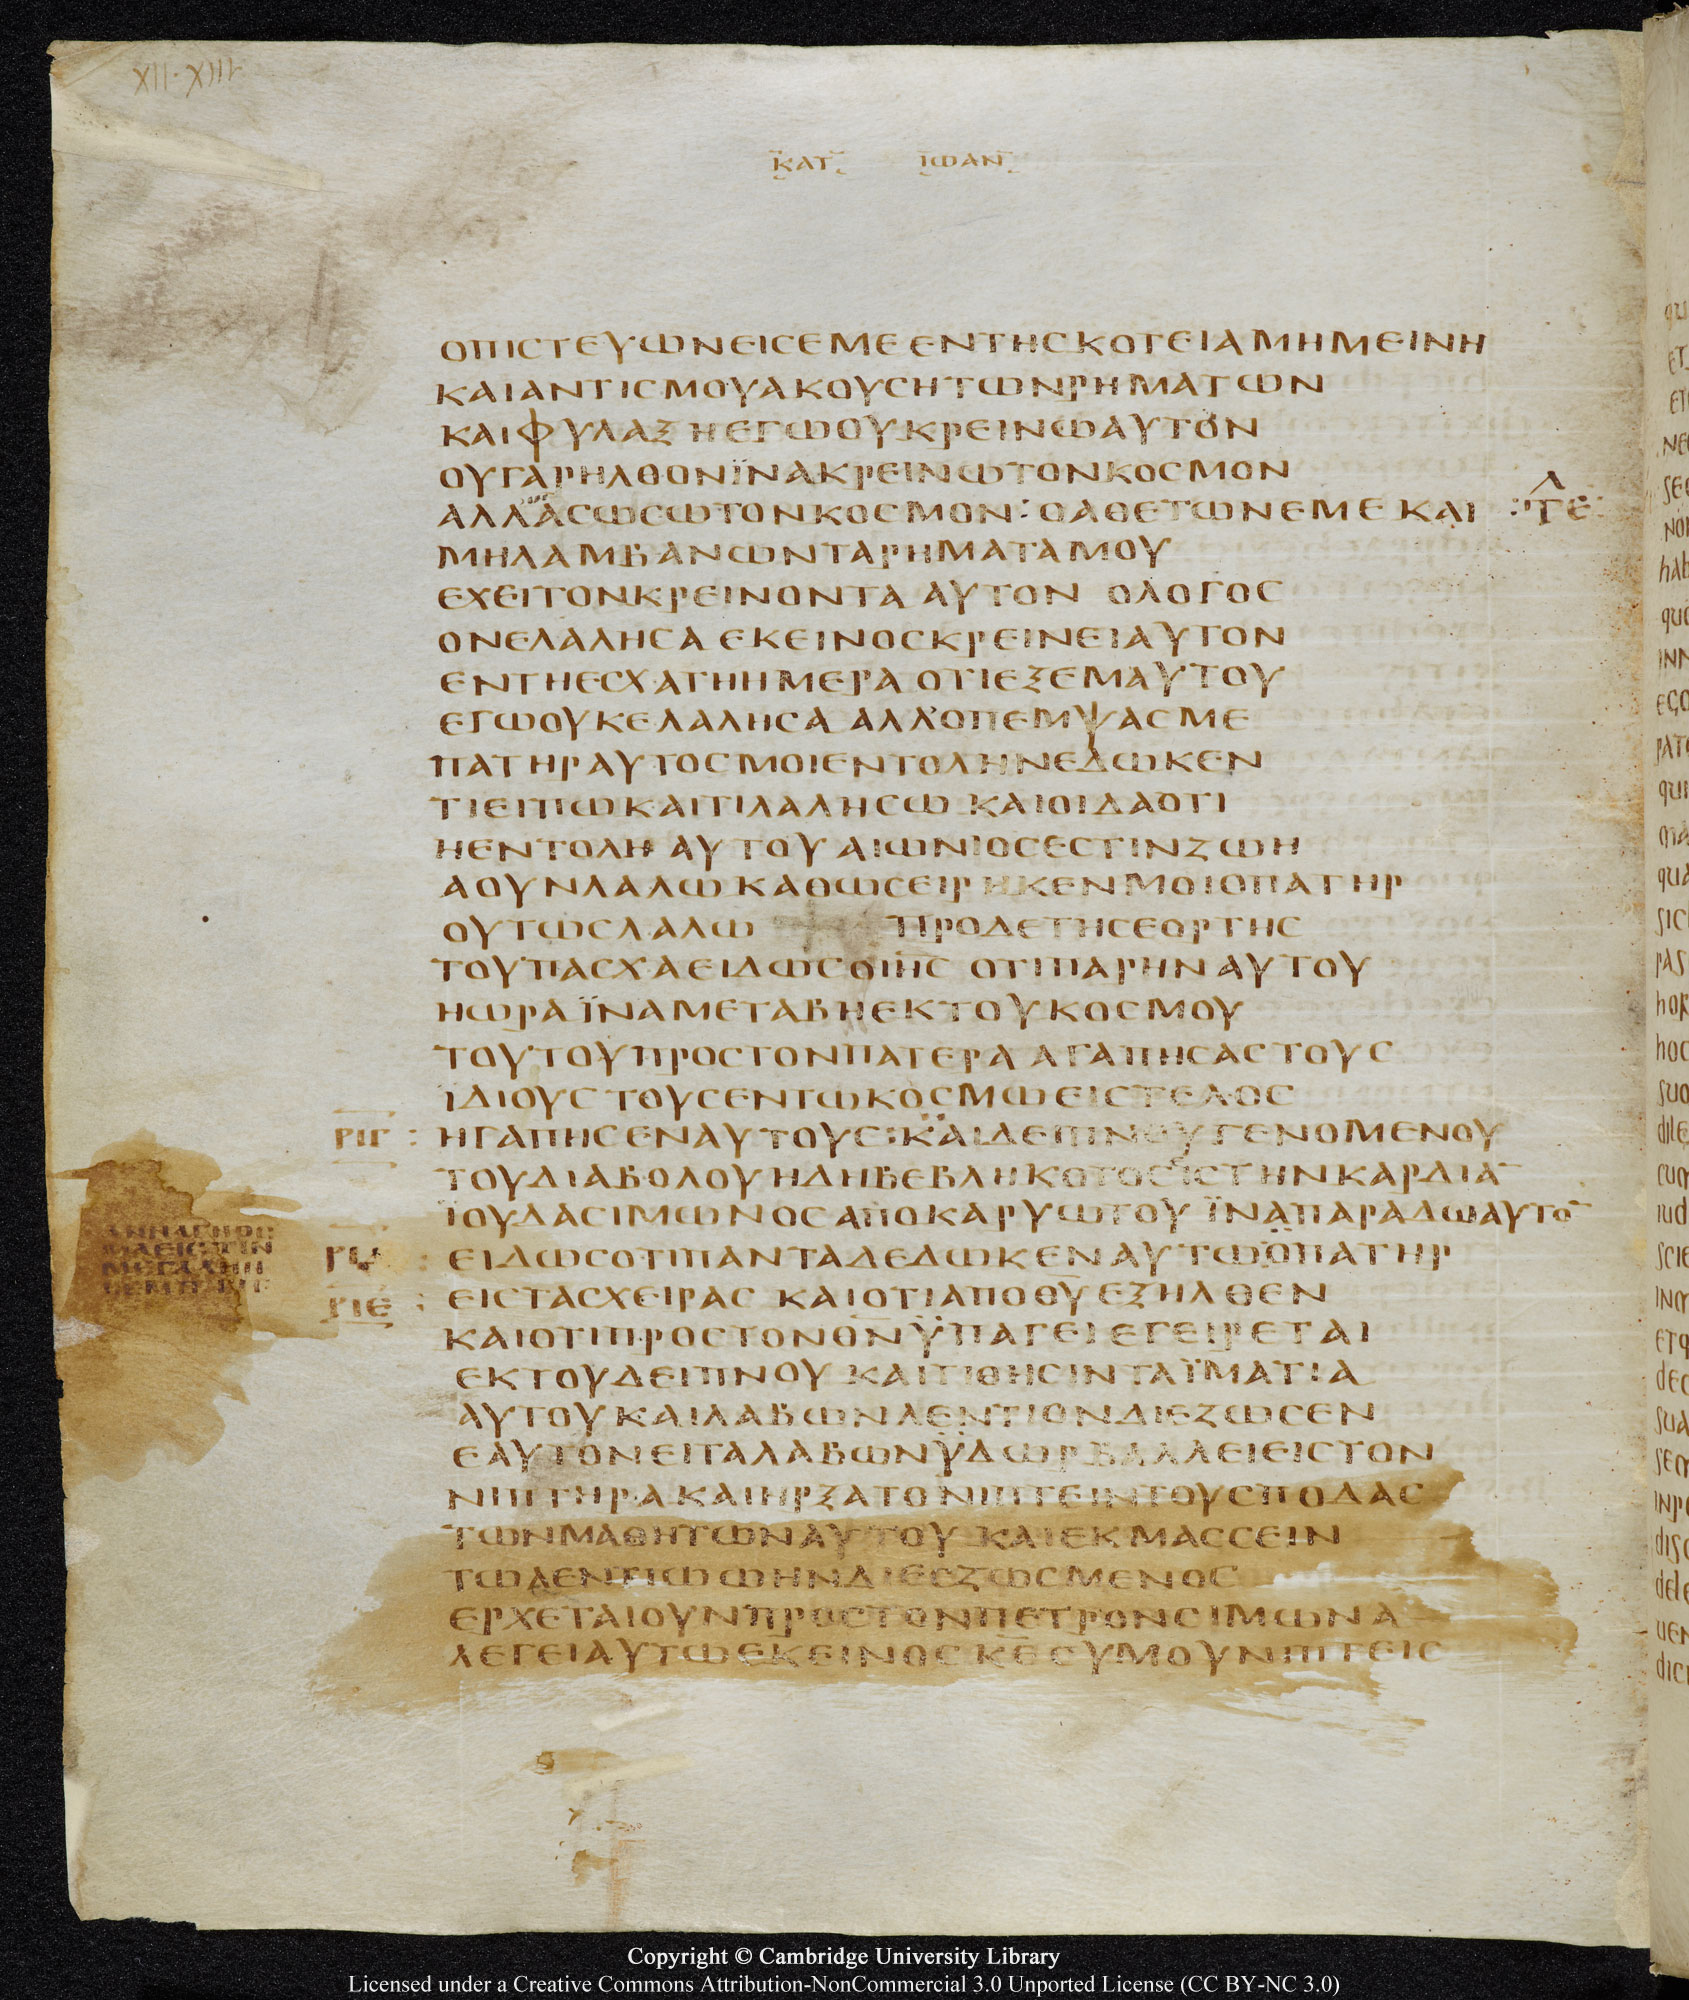 XII·XIII
ΚΑΤ ΙΩΑΝ
ΟΠΙΣΤΕΥΩΝΕΙΣΕΜΕΕΝΤΗΣΚΟΤΕΙΑΜΗΜΕΙΝΗ
ΚΑΙΑΝΤΙΣΜΟΥΑΚΟΥΣΗΤΩΝΡΗΜΑΤΩΝ
ΚΑΙΦΥΛΑΞΗΕΓΩΟΥΚΡΕΙΝΩΑΥΤΟΝ
ΟΥΓΑΡΗΛΘΟΝΪΝΑΚΡΕΙΝΩΤΟΝΚΟΣΜΟΝ
ΑΛΛΑΣΩΣΩΤΟΝΚΟΣΜΟΝ: ΟΑΘΕΤΩΝΕΜΕΚΑΙ
ΜΗΛΑΜΒΑΝΩΝΤΑΡΗΜΑΤΑΜΟΥ
ΕΧΕΙΤΟΝΚΡΕΙΝΟΝΤΑ ΑΥΤΟΝ ΟΛΟΓΟΣ
ΟΝΕΛΑΛΗΣΑ ΕΚΕΙΝΟΣΚΡΕΙΝΕΙΑΥΤΟΝ
ΕΝΤΗΕΣΧΑΤΗΗΜΕΡΑ ΟΤΙΕΞΕΜΑΥΤΟΥ
ΕΓΩΟΥΚΕΛΑΛΗΣΑ ΑΛΛ'ΟΠΕΜΨΑΣΜΕ
ΠΑΤΗΡΑΥΤΟΣΜΟΙΕΝΤΟΛΗΝΕΔΩΚΕΝ
ΤΙΕΙΠΩΚΑΙΤΙΛΑΛΗΣΩ ΚΑΙΟΙΔΑΟΤΙ
ΗΕΝΤΟΛΗ ΑΥΤΟΥΑΙΩΝΙΟΣΕΣΤΙΝΖΩΗ
ΑΟΥΝΛΑΛΩΚΑΘΩΣΕΙΡΗΚΕΝΜΟΙΟΠΑΤΗΡ
ΟΥΤΩΣΛΑΛΩ ΠΡΟΔΕΤΗΣΕΟΡΤΗΣ
ΤΟΥΠΑΣΧΑΕΙΔΩΣΟΙΗΣ ΟΤΙΠΑΡΗΝΑΥΤΟΥ
ΗΩΡΑΪΝΑΜΕΤΑΒΗΕΚΤΟΥΚΟΣΜΟΥ
ΤΟΥΤΟΥΠΡΟΣΤΟΝΠΑΤΕΡΑ ΑΓΑΠΗΣΑΣΤΟΥΣ
ΪΔΙΟΥΣ ΤΟΥΣΕΝΤΩΚΟΣΜΩΕΙΣΤΕΛΟΣ
ΡΙΓ : ΗΓΑΠΗΣΕΝΑΥΤΟΥΣ:ΚΑΙΔΕΙΠΝΟΥΓΕΝΟΜΕΝΟΥ
ΤΟΥΔΙΑΒΟΛΟΥΗΔΗΒΕΒΛΗΚΟΤΟΣΙΣΤΗΝΚΑΡΔΙΑ̅
ΪΟΥΔΑΣΙΜΩΝΟΣΑΠΟΚΑΡΥΩΤΟΥ ΪΝΑΠΑΡΑΔΩΑΥΤΟ̅
ΕΙΔΩΣΟΤΙΠΑΝΤΑΔΕΔΩΚΕΝΑΥΤΩΟΠΑΤΗΡ
ΡΙΕ : ΕΙΣΤΑΣΧΕΙΡΑΣ ΚΑΙΟΤΙΑΠΟΘΥΕΞΗΛΘΕΝ
ΚΑΙΟΤΙΠΡΟΣΤΟΝΘΝΫΠΑΓΕΙΕΓΕΙΡΕΤΑΙ
ΕΚΤΟΥΔΕΙΠΝΟΥ ΚΑΙΤΙΘΗΣΙΝΤΑΪΜΑΤΙΑ
ΑΥΤΟΥΚΑΙΛΑΒΩΝΛΕΝΤΙΟΝΔΙΕΖΩΣΕΝ
ΕΑΥΤΟΝΕΙΤΑΛΑΒΩΝΫΔΩΡΒΑΛΛΕΙΕΙΣΤΟΝ
ΝΙΠΤΗΡΑΚΑΙΗΡΞΑΤΟΝΙΠΤΕΙΝΤΟΥΣΠΟΔΑΣ
ΤΩΝΜΑΘΗΤΩΝΑΥΤΟΥ ΚΑΙΕΚΜΑΣΣΕΙΝ
ΤΩΛΕΝΤΙΩΩΗΝΔΙΕΣΖΩΣΜΕΝΟΣ
ΕΡΧΕΤΑΙΟΥΝΠΡΟΣΤΟΝΠΕΤΡΟΝΣΙΜΩΝΑ
ΛΕΓΕΙΑΥΤΩΕΚΕΙΝΟΣΚΕΣΥΜΟΥΝΙΠΤΕΙΣ
Copyright © Cambridge University Library
Licensed under a Creative Commons Attribution-NonCommercial 3.0 Unported License (CC BY-NC 3.0)